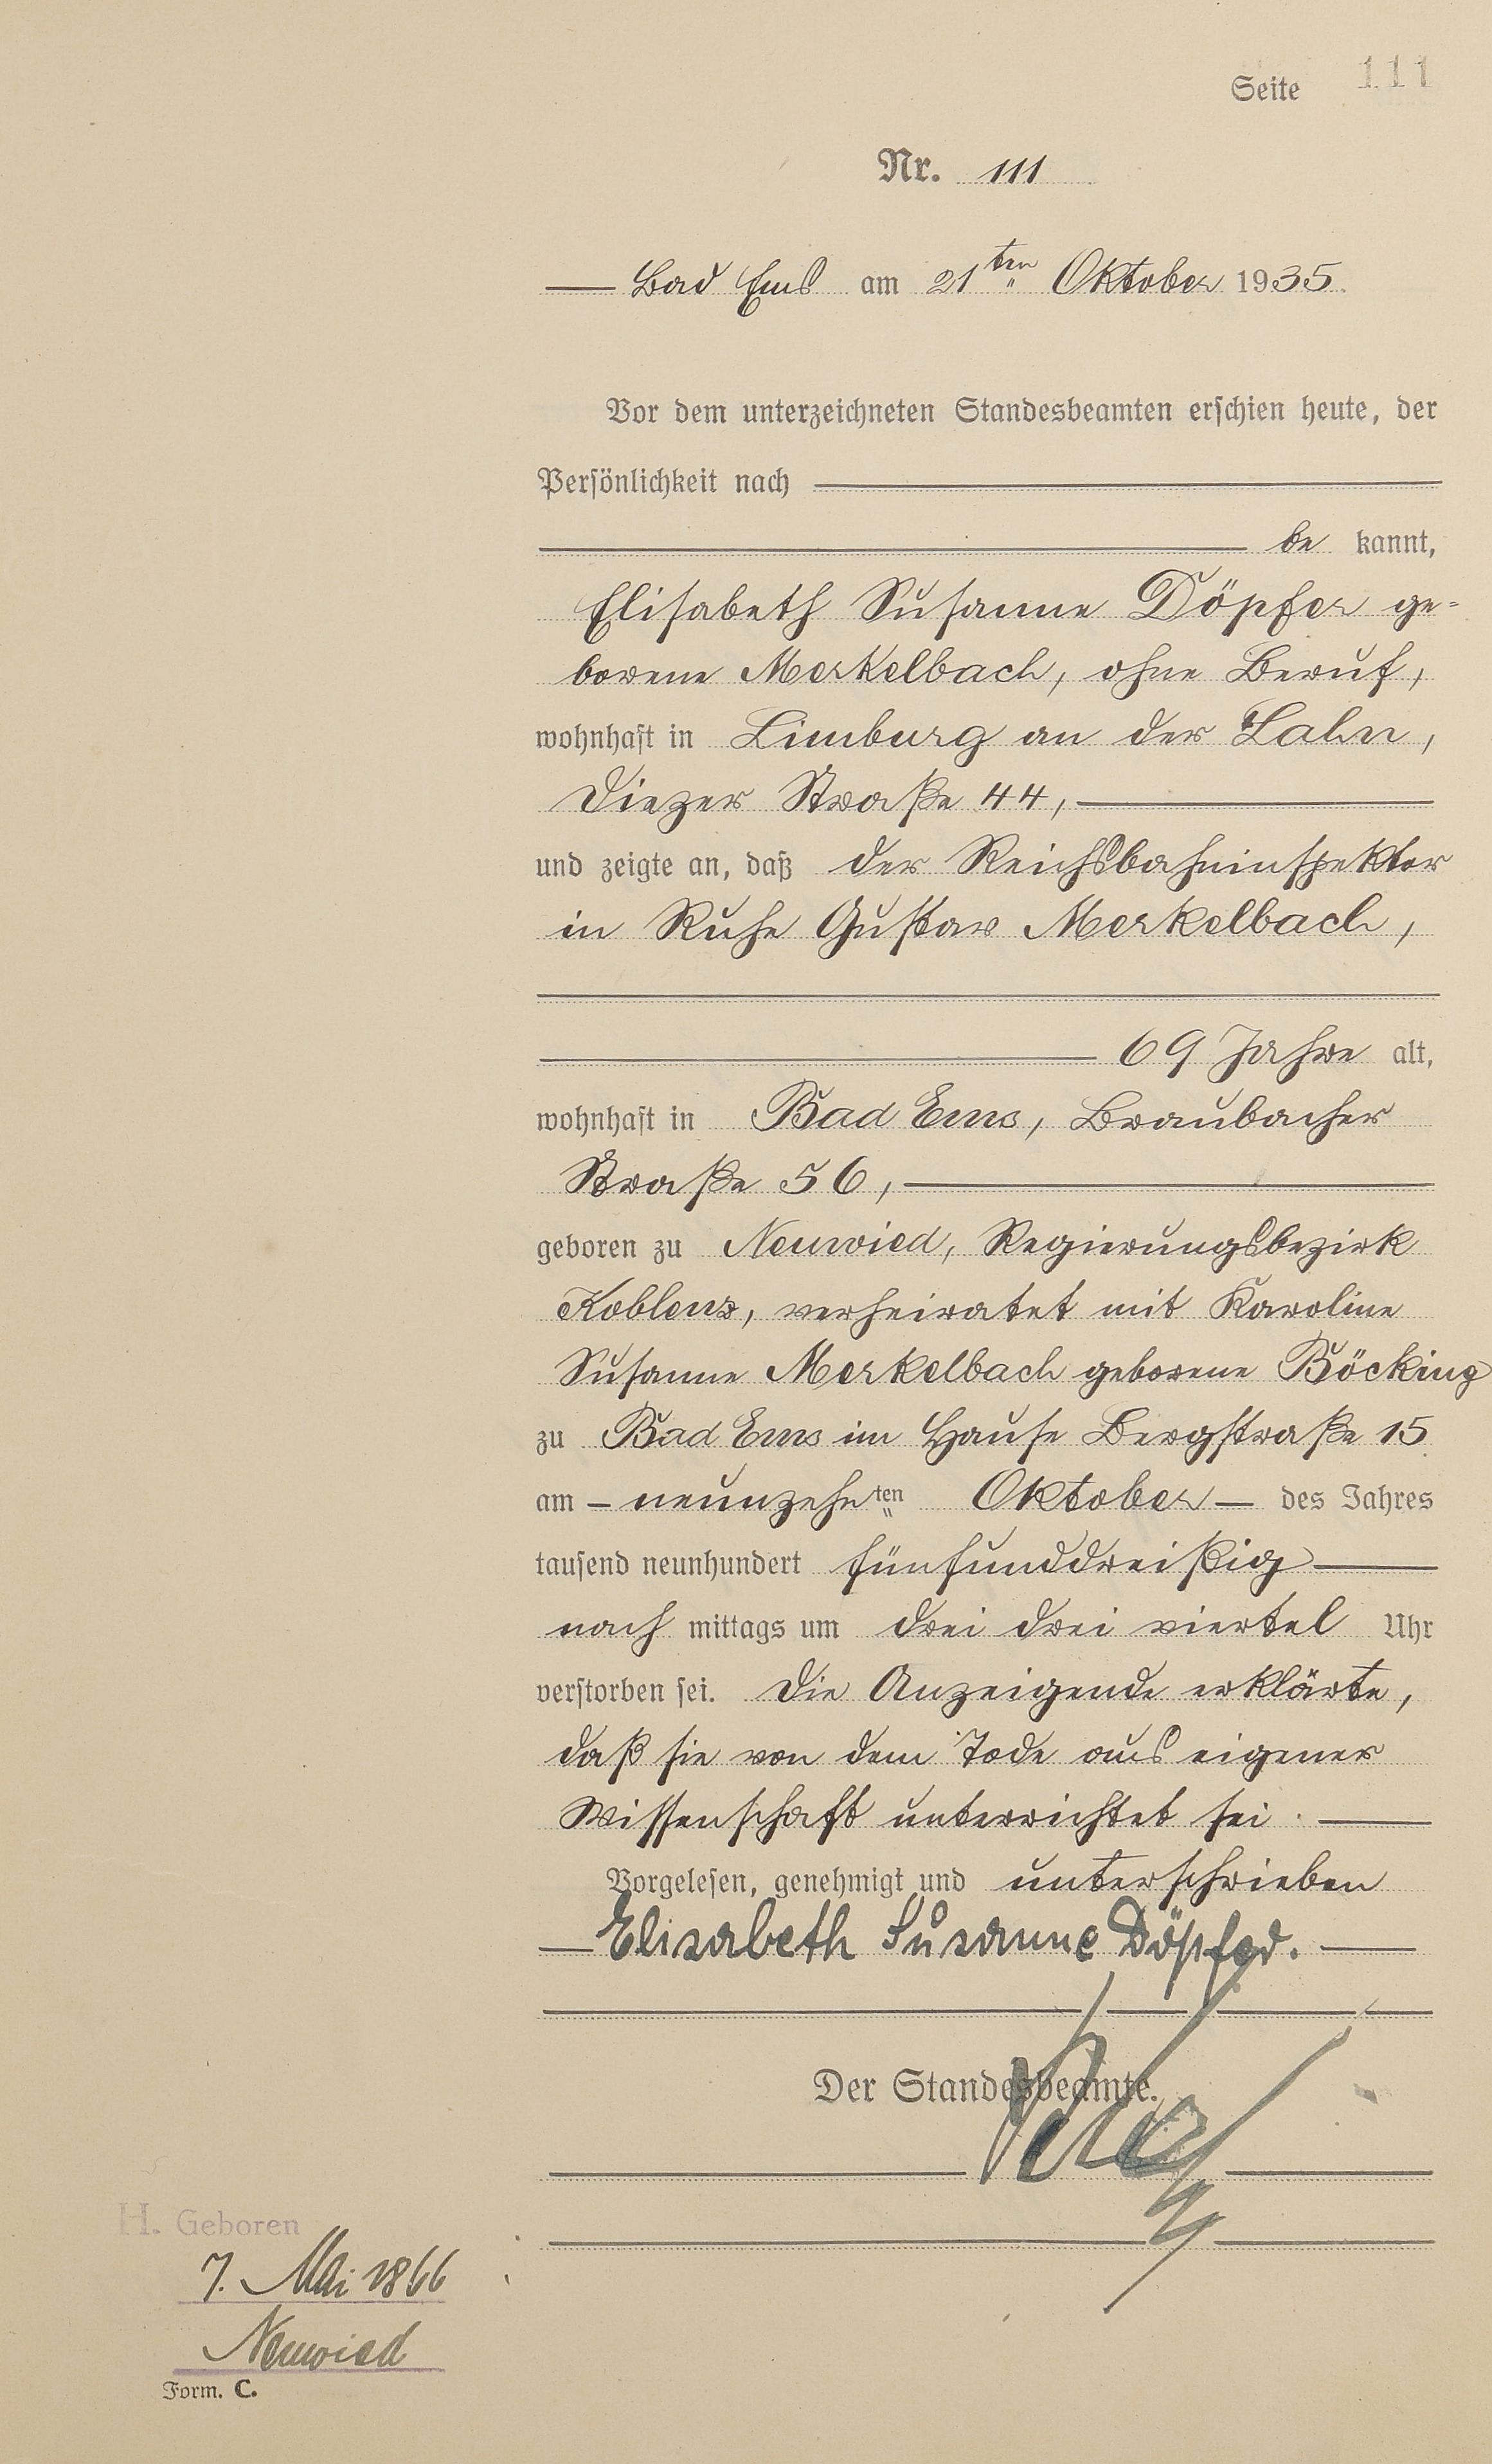 Seite 111
Nr. 111
Bad Ems am 21ten Oktober 1935.
Vor dem unterzeichneten Standesbeamten erschien heute, der
Persönlichkeit nach
be kannt,
Elisabeth Susanne Döpfer ge-
borene Merkelbach, ohne Beruf,
wohnhaft in Limburg an der Lahn,
Diezer Straße 44,
und zeigte an, daß der Reichsbahninspektor
in Ruhe Gustav Merkelbach,
69 Jahre alt,
wohnhaft in Bad Ems, Braubacher
Straße 56,
geboren zu Neuwied, Regierungsbezirk
Koblenz, verheiratet mit Karoline
Susanne Merkelbach geborene Böcking
zu Bad Ems im Hause Bergstraße 15
am neunzehnten Oktober des Jahres
tausend neunhundert fünfunddreißig
nach mittags um drei drei viertel Uhr
verstorben sei. Die Anzeigende erklärte,
daß sie von dem Tode aus eigener
Wissenschaft unterrichtet sei.
Vorgelesen, genehmigt und unterschrieben
Elisabeth Susanne Döpfer.
Der Standesbeamte.
H. Geboren
7. Mai 1866
Neuwied
Form. C.